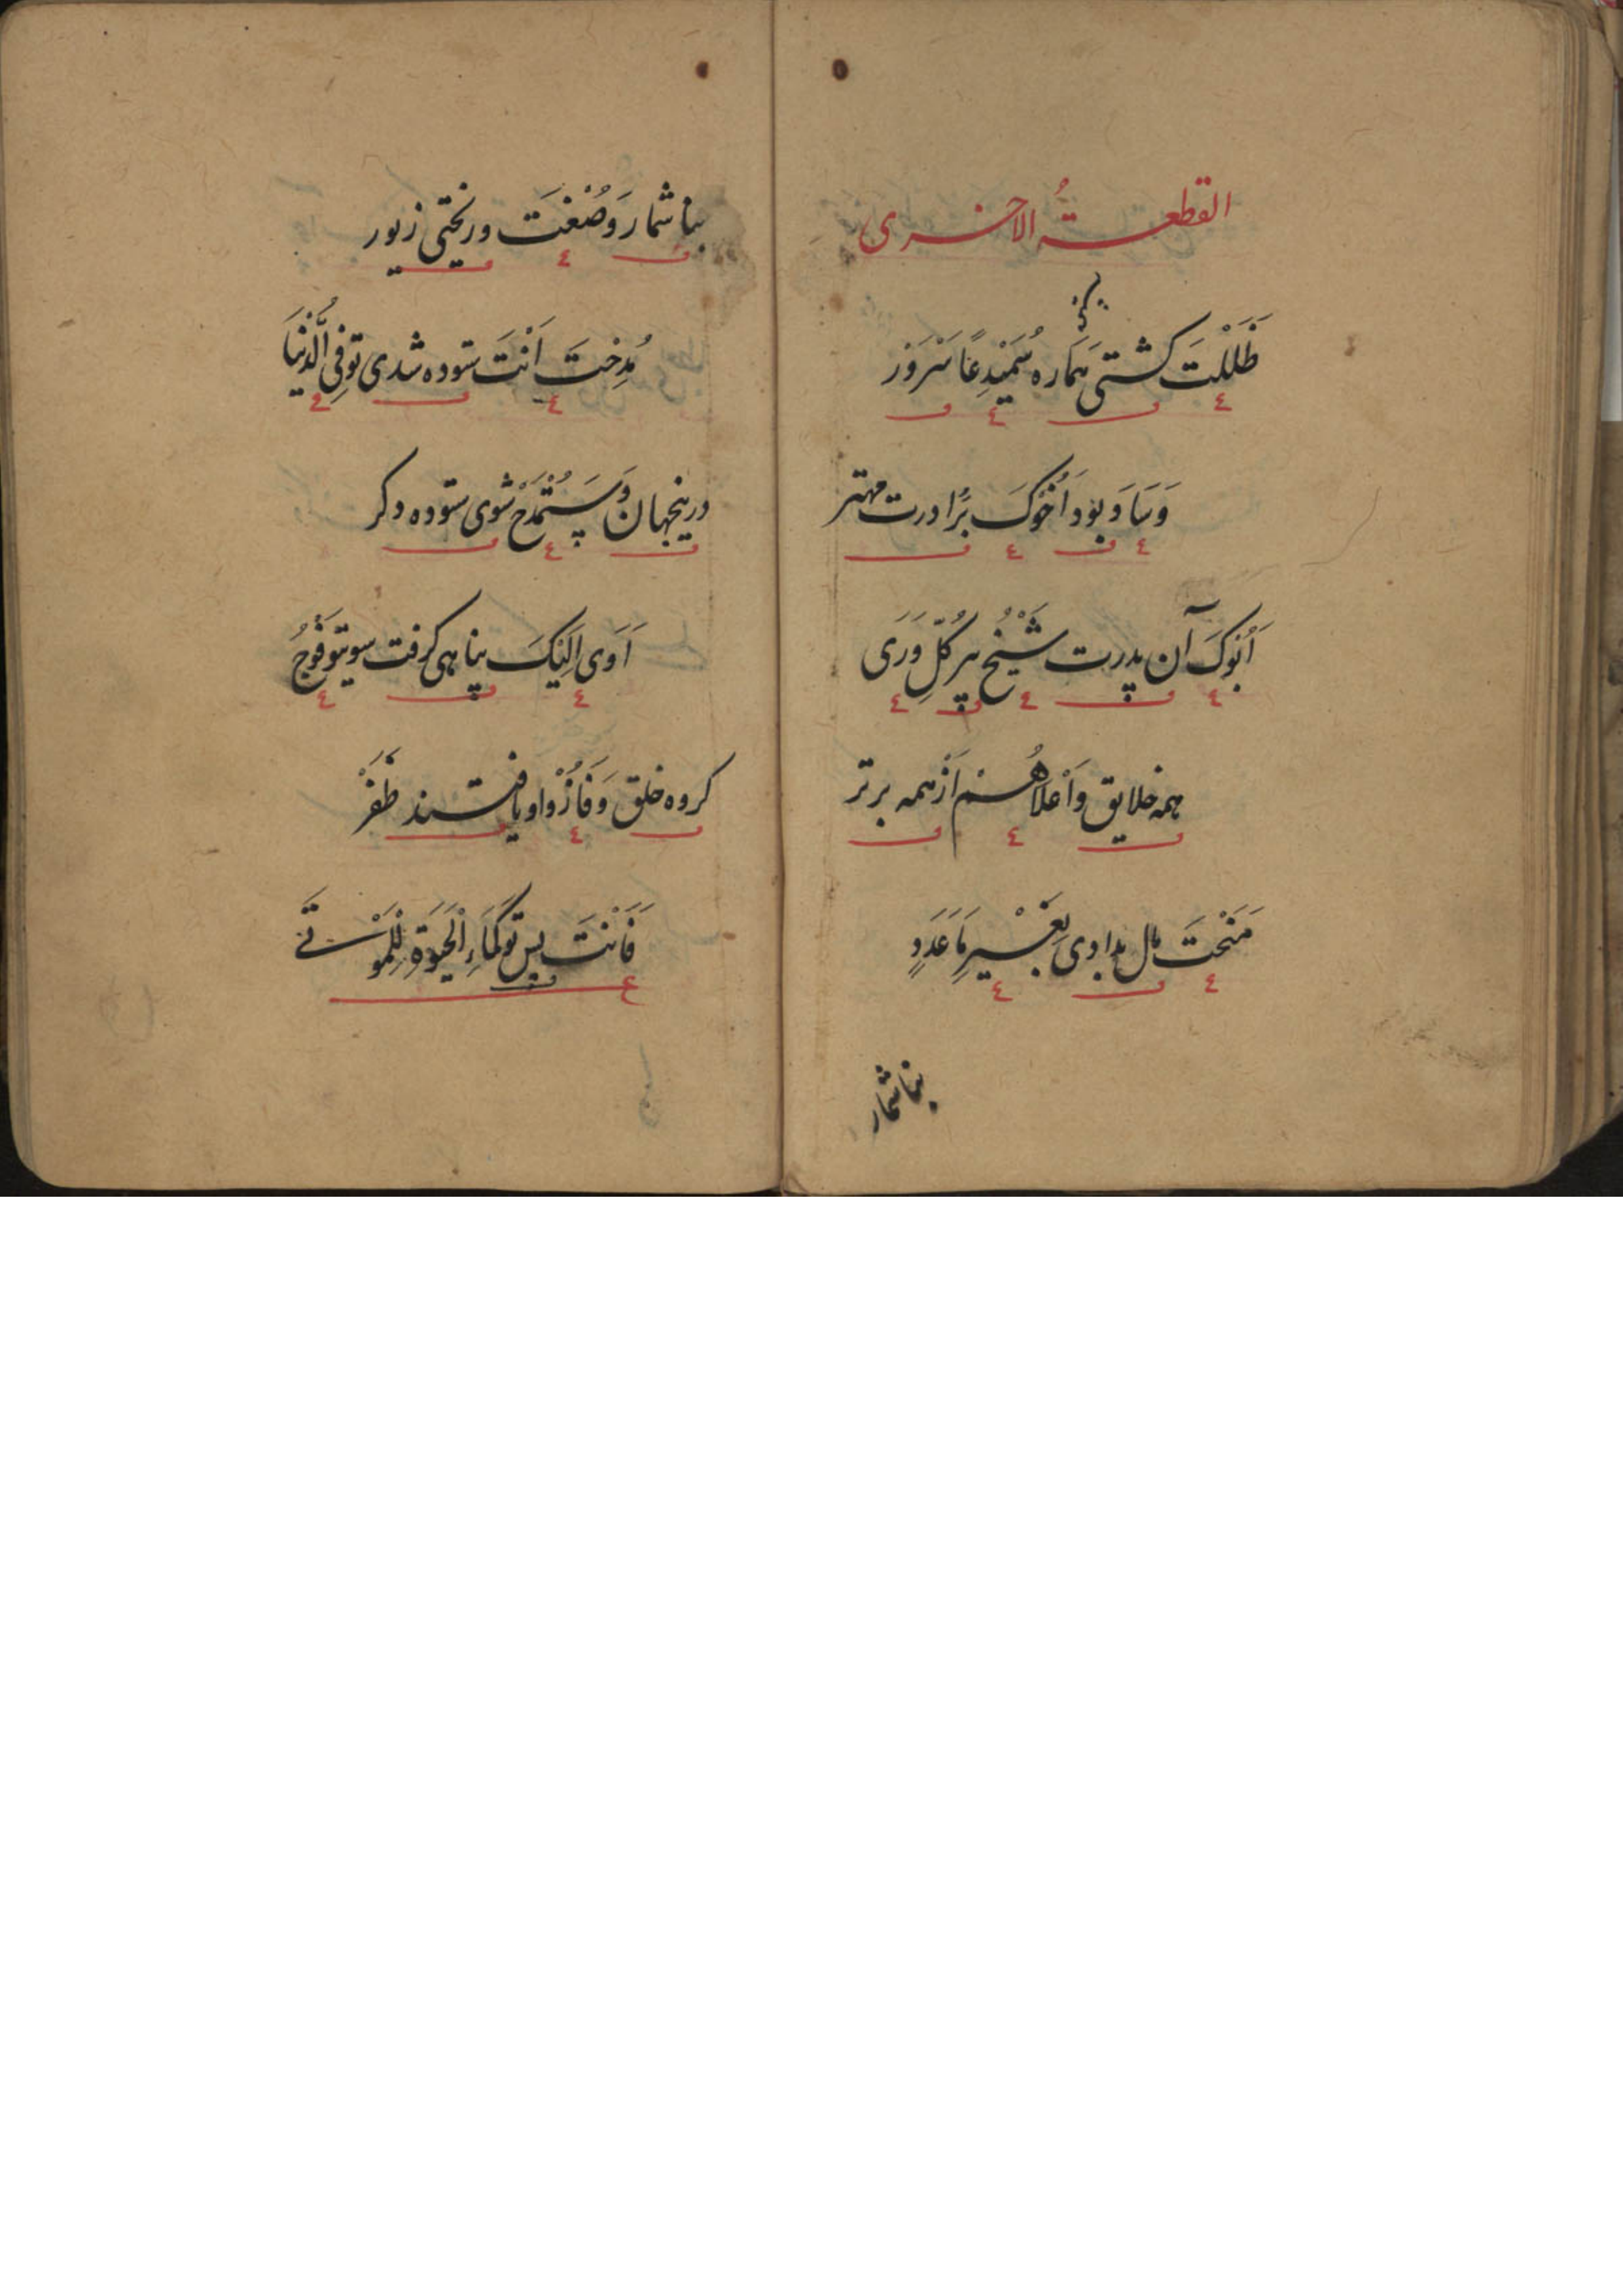 القطعةُ الاخرى
ظَلَلْتَ کشتی هَمَاره سُمَیْدِعًا سَرْوَرْ
وَسَادَ بود اَخُوکَ بَرادرت مهتر
اَبُوکَ آن پدرت شَیْخُ پیر کُلِّ وَرَی
همه خلایق وَاَعْلاهُمْ اَزْ همه برتر
مَنَحْتَ مال بدادی بِغَیْرِ مَا عَدَدٍ
بیاشمار
بیاشمار وَصُغْتَ وریختی زیور
مُدِحْتَ اَنْتَ ستوده شدی تو فِی الدُّنْیَا
درینجهان وَسَتُمْدَحْ شوی ستوده دکر
اَوَی اِلَیْکَ پناهی کرفت سویتو فَوْجُ
کروه خلق وَفَازُوْا ویافتند ظَفَرْ
فَاَنْتَ پس تو کَمَاءِ الْحَیَوةِ لِلْمَوْتَی